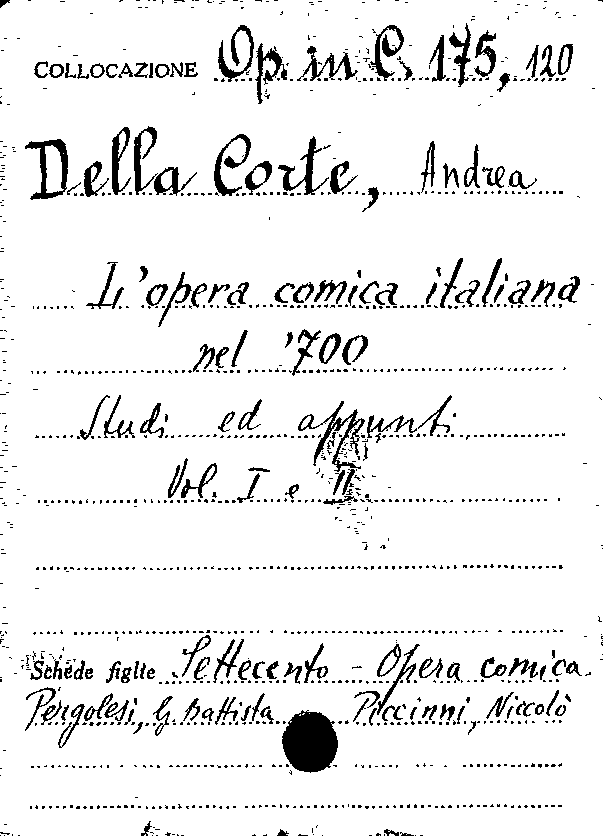 COLLOCAZIONE Op. in C. 175, 120
Della Corte, Andrea
L'opera comica italiana
nel '700
Studi ed appunti
Vol. I e II.
Schede figlie Settecento - Opera comica
Pergolesi, G. Battista Piccinni, Niccolò